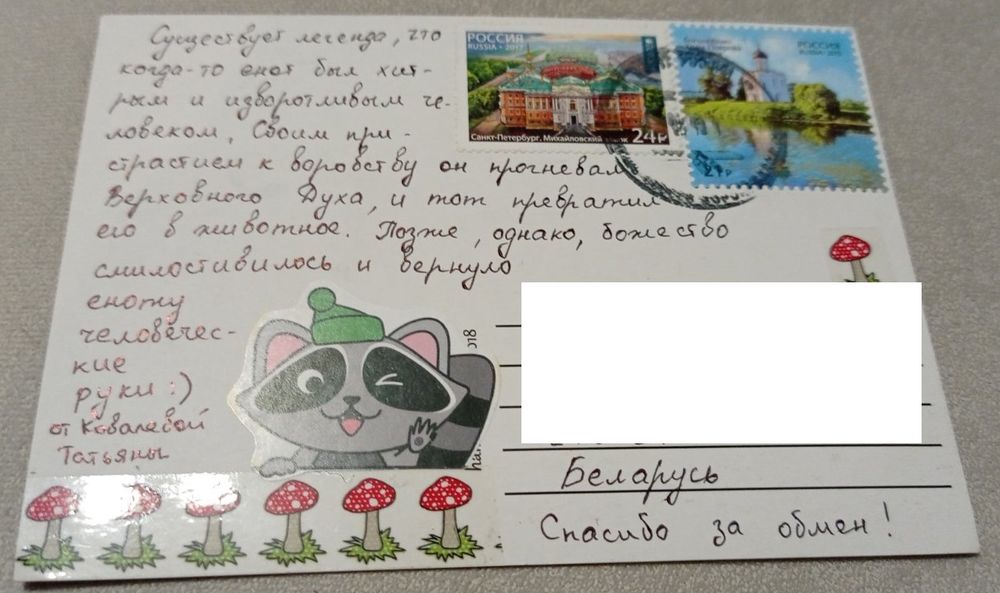 Существует легенда, что
когда-то енот был хит-
рым и изворотливым че-
ловеком. Своим при-
страстием к воровству он прогневал
Верховного Духа, и тот превратил
его в животное. Позже, однако, божество
смилостивилось и вернуло
еноту
человечес-
кие
руки :)
от Ковалевой
Татьяны
РОССИЯ
RUSSIA • 2017
Санкт-Петербург. Михайловский
24₽
РОССИЯ
RUSSIA
Беларусь
Спасибо за обмен!